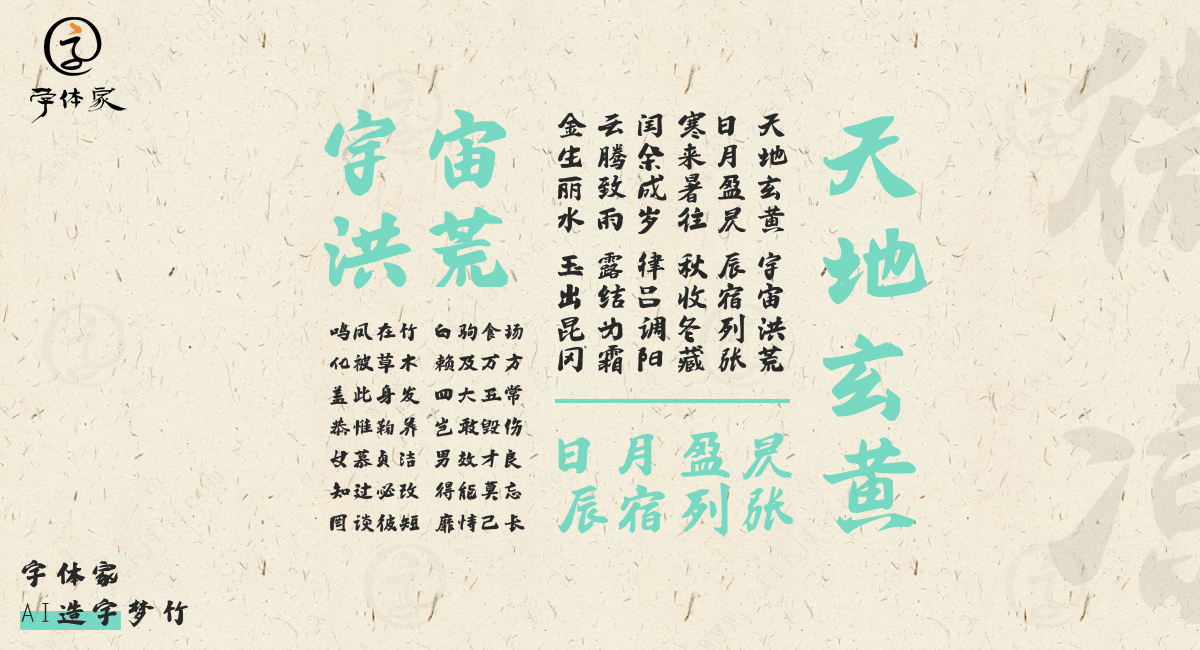 字体家
天地玄黄
天地玄黄 宇宙洪荒
日月盈昃 辰宿列张
寒来暑往 秋收冬藏
闰余成岁 律吕调阳
云腾致雨 露结为霜
金生丽水 玉出昆冈
日月盈昃
辰宿列张
宇宙
洪荒
鸣凤在竹 白驹食场
化被草木 赖及万方
盖此身发 四大五常
恭惟鞠养 岂敢毁伤
女慕贞洁 男效才良
知过必改 得能莫忘
罔谈彼短 靡恃己长
字体家
AI造字梦竹